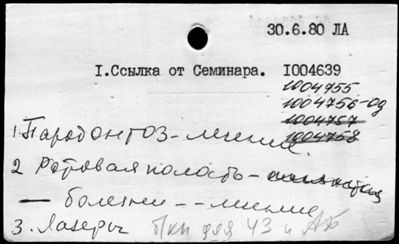 30.6.80 ЛА
I.Ссылка от Семинара. I004639
1004755
1004756-од
1004757
1004758
1. Пародонтоз-лечение
2 Ротовая полость-
— болезни - - лечение
3. Лазеры б/кн для ЧЗ и АБ